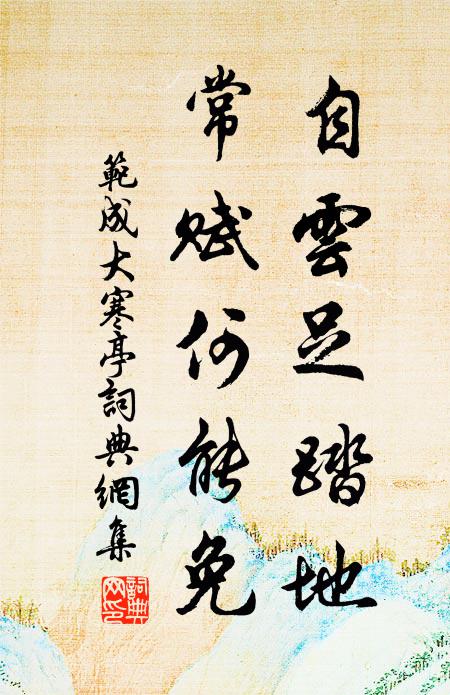 自雲足踏地
常賦何能免
範成大寒亭詞典網集
詞典
网印